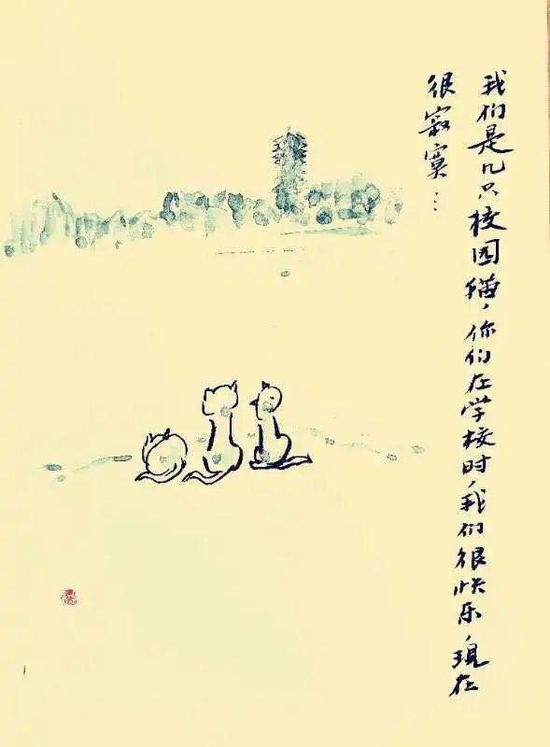 我们是几只校园猫，你们在学校时，我们很快乐，現在
很寂寞…